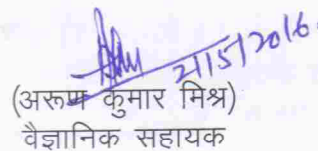 2/5/2016
(अरूण कुमार मिश्र)
वैज्ञानिक सहायक